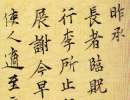 昨承
長者臨貺
行李所止
展謝今早
使人適至